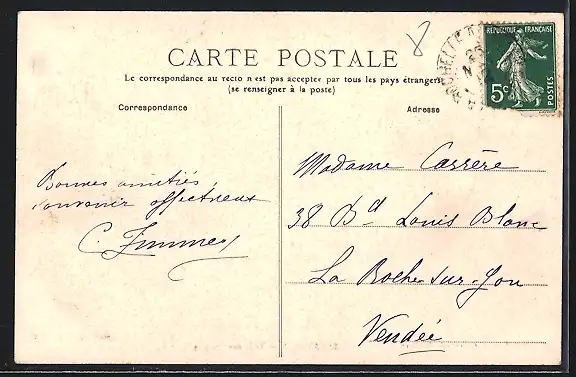 8
CARTE POSTALE
Le correspondance au recto n'est pas acceptée par tous les pays étrangers
(se renseigner à la poste)
RÉPUBLIQUE FRANÇAISE
5c
POSTES
Correspondance
Bonnes amitiés,
souvenir affectueux
C.
Adresse
Madame Carrère
38 Bd Louis Blanc
La Roche-sur-Yon
Vendée